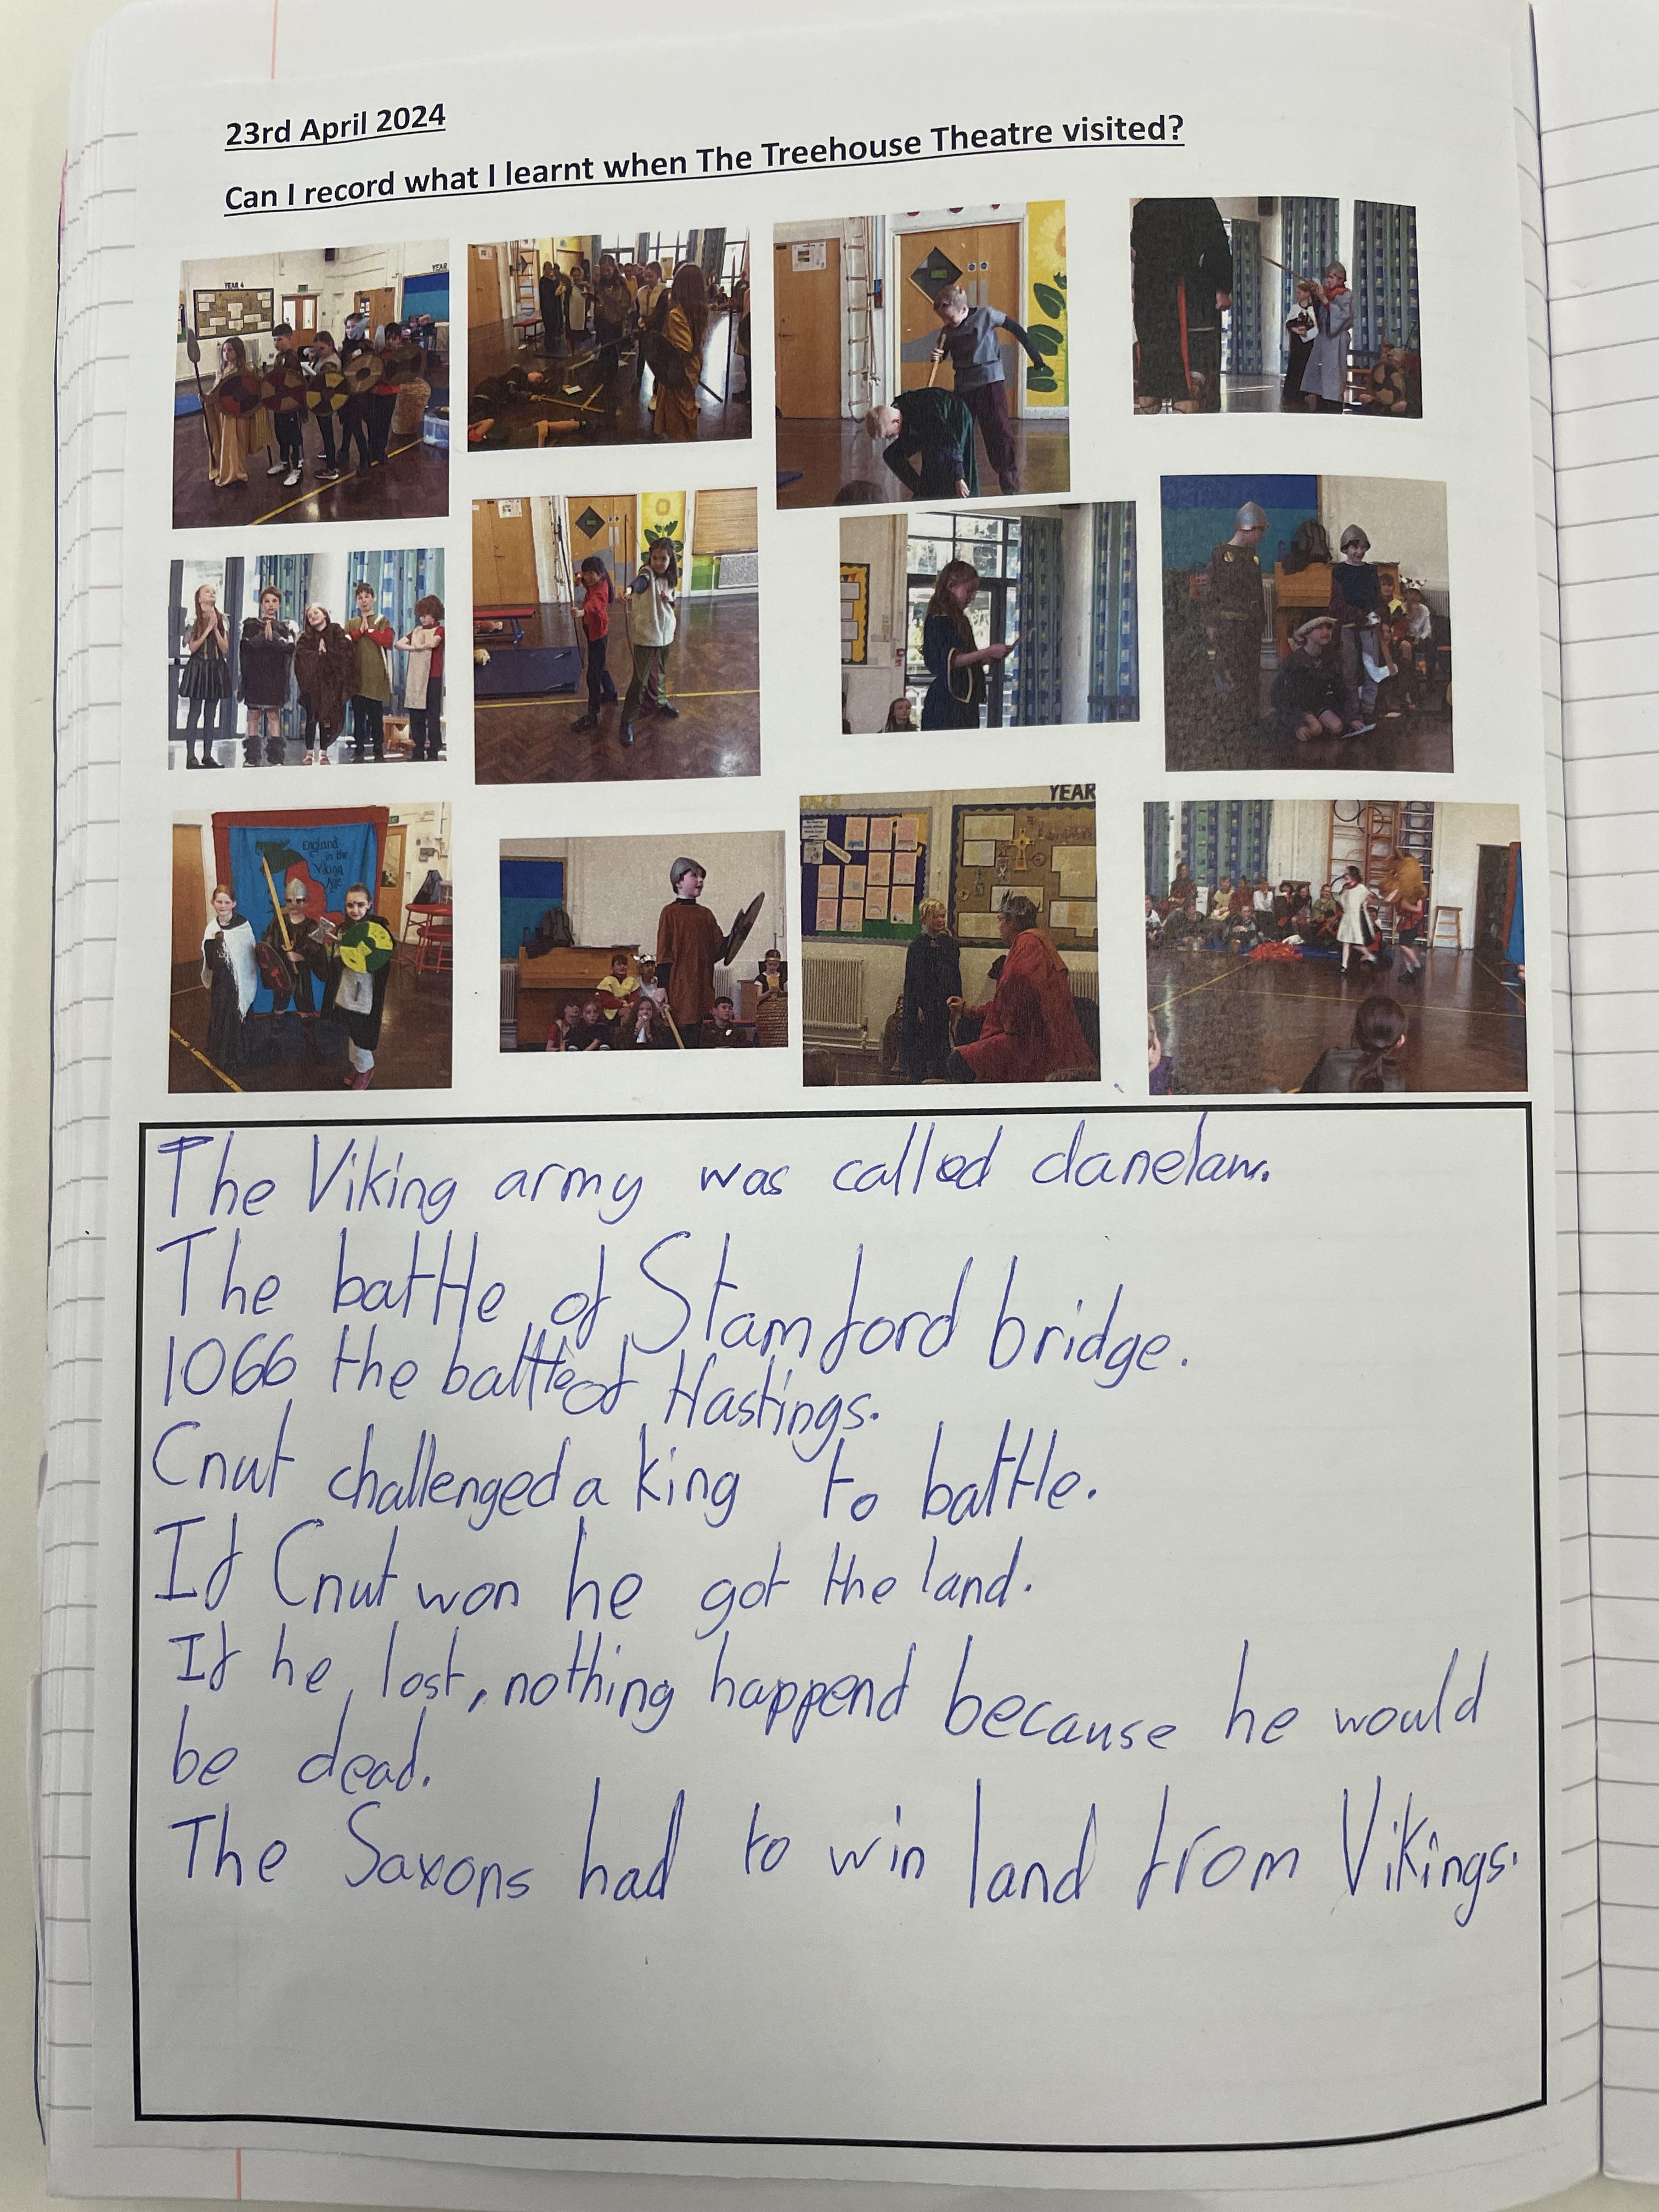 23rd April 2024
Can I record what I learnt when The Treehouse Theatre visited?
YEAR 4
YEAR
England
in the
Viking
Age
YEAR
The Viking army was called danelaw.
The battle of Stamford bridge.
1066 the battle of Hastings.
Cnut challenged a king to battle.
If Cnut won he got the land.
If he lost, nothing happend because he would
be dead.
The Saxons had to win land from Vikings.